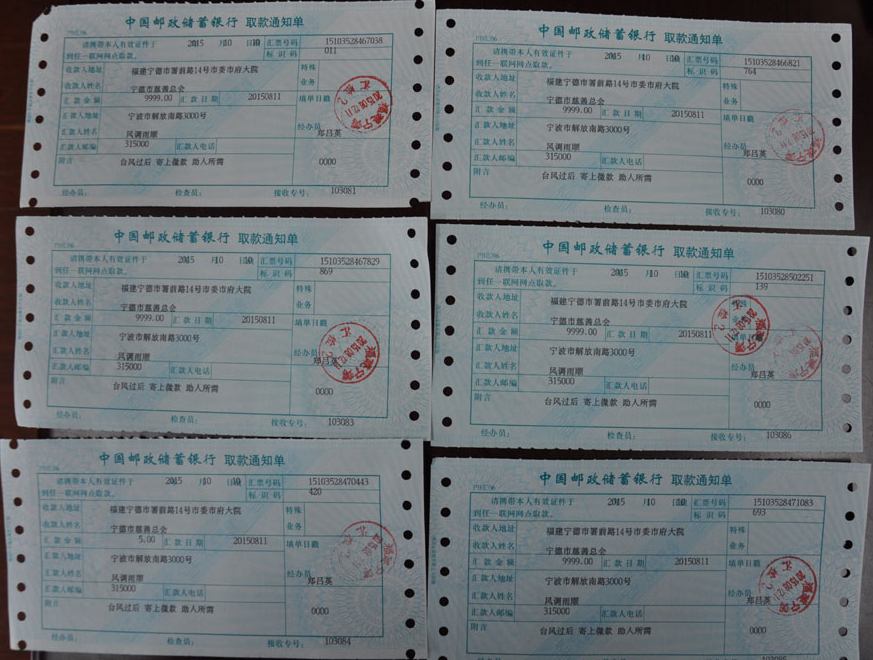 中国邮政储蓄银行 取款通知单
请携带本人有效证件于 2015 月10 日10 汇票号码 15103528467038
到任一联网网点取款。 标 识 码 011
收款人地址 福建宁德市署前路14号市委市府大院 特殊
收款人姓名 宁德市慈善总会 业务
汇 款 金 额 9999.00 汇 款 日 期 20150811 填单日戳
汇款人地址 宁波市解放南路3000号
汇款人姓名 风调雨顺 经办员 郑吕英
汇款人邮编 315000 汇款人电话
附言 台风过后 寄上微款 助人所需 0000
经办员: 检查员: 接收专号: 103081
中国邮政储蓄银行 取款通知单
请携带本人有效证件于 2015 月10 日10 汇票号码 15103528466821
到任一联网网点取款。 标 识 码 764
收款人地址 福建宁德市署前路14号市委市府大院 特殊
收款人姓名 宁德市慈善总会 业务
汇 款 金 额 9999.00 汇 款 日 期 20150811 填单日戳
汇款人地址 宁波市解放南路3000号
汇款人姓名 风调雨顺 经办员 郑吕英
汇款人邮编 315000 汇款人电话
附言 台风过后 寄上微款 助人所需 0000
经办员: 检查员: 接收专号: 103080
中国邮政储蓄银行 取款通知单
请携带本人有效证件于 2015 月10 日10 汇票号码 15103528467829
到任一联网网点取款。 标 识 码 869
收款人地址 福建宁德市署前路14号市委市府大院 特殊
收款人姓名 宁德市慈善总会 业务
汇 款 金 额 9999.00 汇 款 日 期 20150811 填单日戳
汇款人地址 宁波市解放南路3000号
汇款人姓名 风调雨顺 经办员 郑吕英
汇款人邮编 315000 汇款人电话
附言 台风过后 寄上微款 助人所需 0000
经办员: 检查员: 接收专号: 103083
中国邮政储蓄银行 取款通知单
请携带本人有效证件于 2015 月10 日10 汇票号码 15103528502251
到任一联网网点取款。 标 识 码 139
收款人地址 福建宁德市署前路14号市委市府大院 特殊
收款人姓名 宁德市慈善总会
汇 款 金 额 9999.00 汇 款 日 期 20150811
汇款人地址 宁波市解放南路3000号
汇款人姓名 风调雨顺 经办员 郑吕英
汇款人邮编 315000 汇款人电话
附言 台风过后 寄上微款 助人所需 0000
经办员: 检查员: 接收专号: 103086
中国邮政储蓄银行 取款通知单
请携带本人有效证件于 2015 月10 日10 汇票号码 15103528470443
到任一联网网点取款。 标 识 码 420
收款人地址 福建宁德市署前路14号市委市府大院 特殊
收款人姓名 宁德市慈善总会 业务
汇 款 金 额 5.00 汇 款 日 期 20150811 填单日戳
汇款人地址 宁波市解放南路3000号
汇款人姓名 风调雨顺 经办员 郑吕英
汇款人邮编 315000 汇款人电话
附言 台风过后 寄上微款 助人所需 0000
经办员: 检查员: 接收专号: 103084
中国邮政储蓄银行 取款通知单
请携带本人有效证件于 2015 月10 日10 汇票号码 15103528471083
到任一联网网点取款。 标 识 码 693
收款人地址 福建宁德市署前路14号市委市府大院 特殊
收款人姓名 宁德市慈善总会 业务
汇 款 金 额 9999.00 汇 款 日 期 20150811 填单日戳
汇款人地址 宁波市解放南路3000号
汇款人姓名 风调雨顺 经办员 郑吕英
汇款人邮编 315000 汇款人电话
附言 台风过后 寄上微款 助人所需 0000